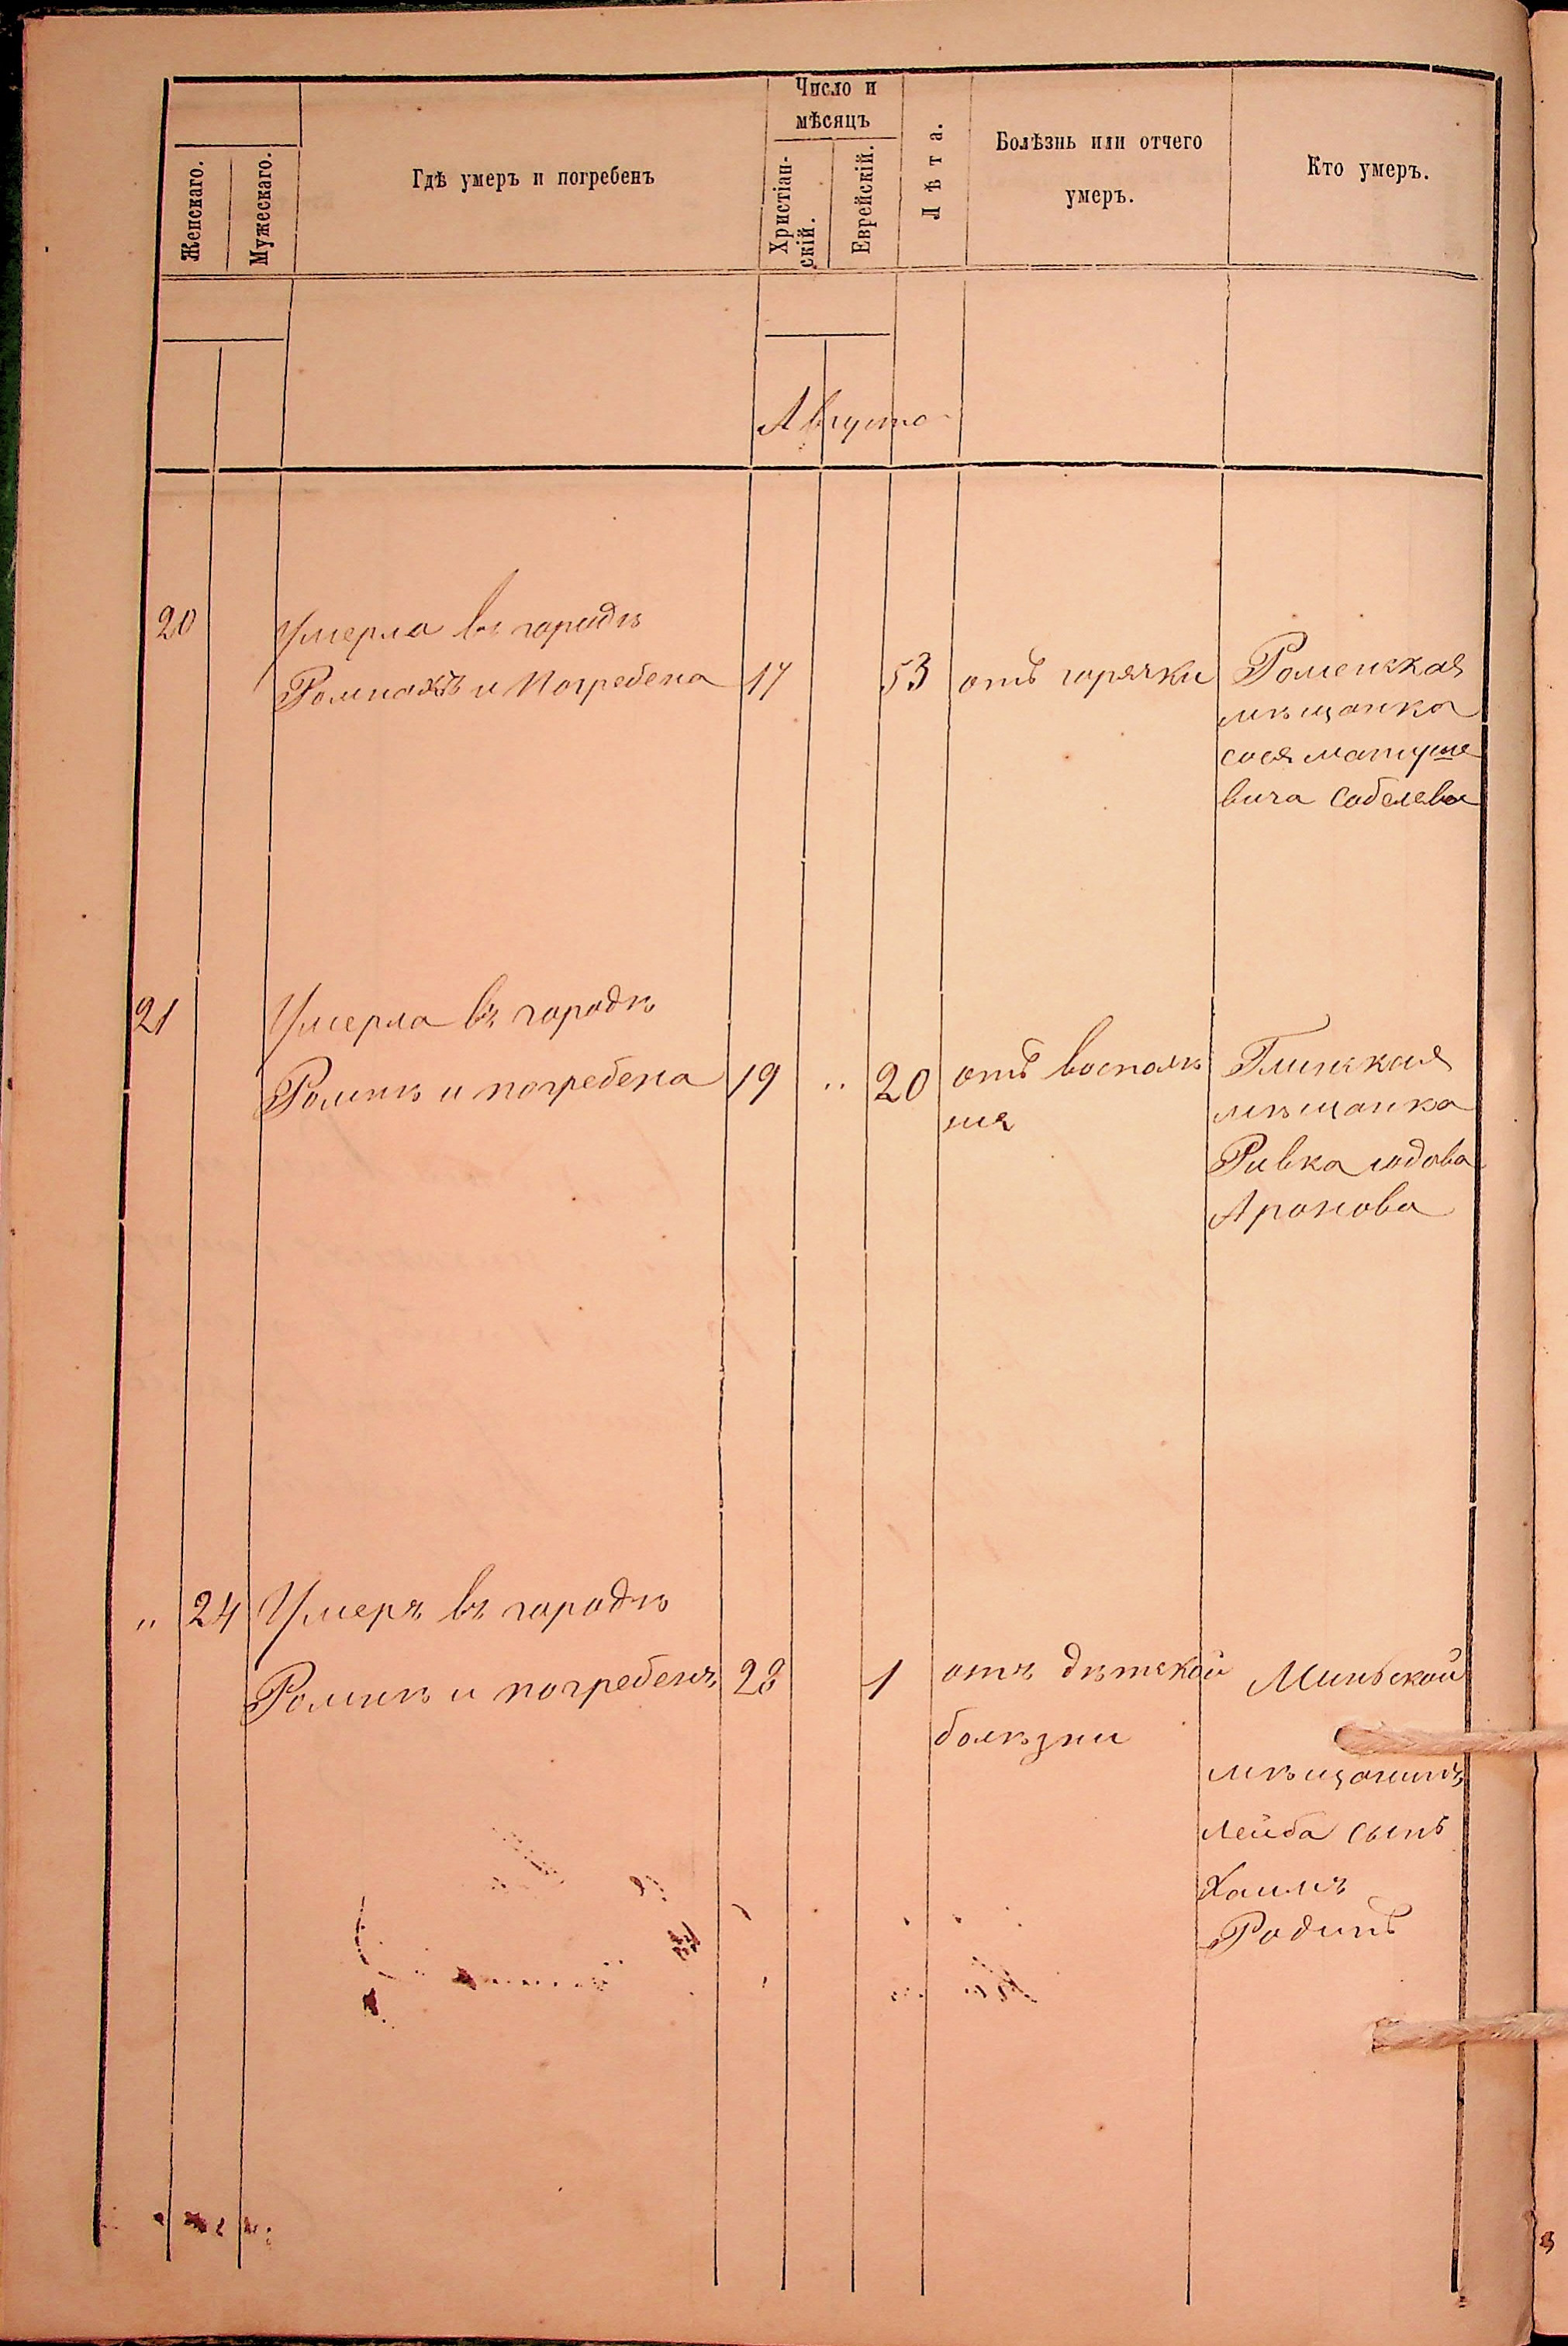 Женскаго.
Мужескаго.
Гдѣ умеръ и погребенъ
Число и
мѣсяцъ
Христіан-
скій.
Еврейскій.
Лѣта.
Болѣзнь или отчего
умеръ.
Кто умеръ.
Августа
20
Умерла въ городѣ
Ромнахъ и Погребена
17
53
отъ горячки
Роменская
мѣщанка
сося матуше
вича Соболева
21
Умерла въ городѣ
Ромнѣ и погребена
19
"
20
отъ воспалѣ
ния
Глинская
мѣщанка
Ривка юдова
Аронова
"
24
Умеръ въ городѣ
Ромнѣ и погребенъ
28
1
отъ дѣтской
болѣзни
Минской
мѣщанинъ
Лейба сынъ
Хаимъ
Родинъ